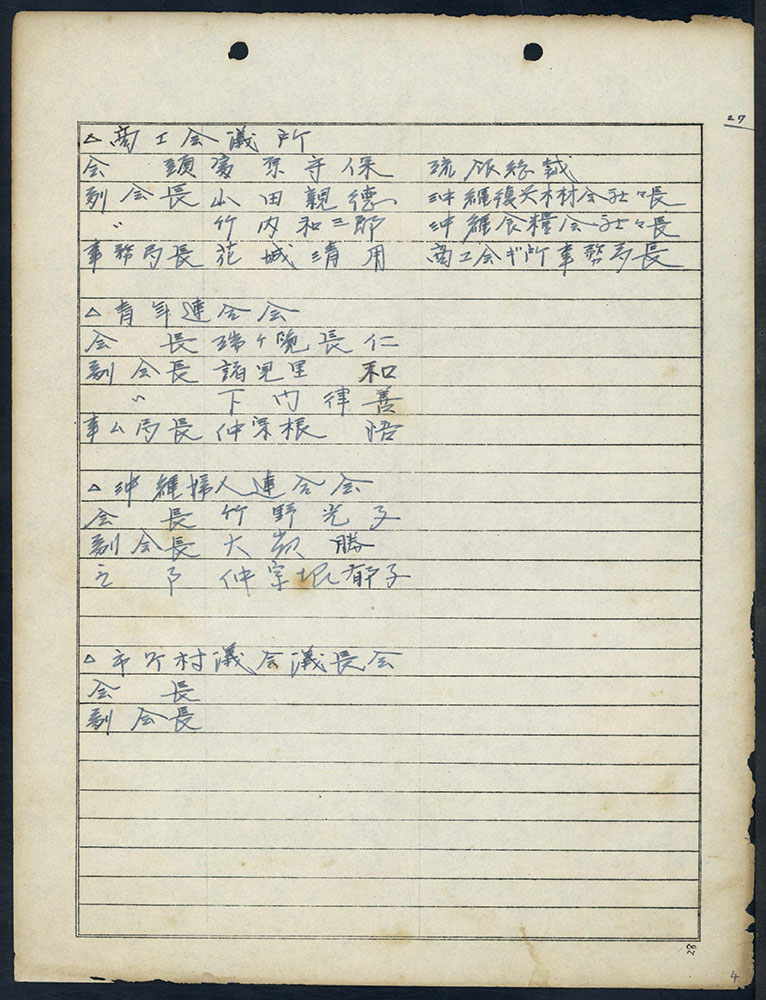 27
△商工会議所
会 頭 富原守保 琉銀総裁
副会長 山田親徳 沖縄復興木材会社々長
〃 竹内和三郎 沖縄食糧会社々長
事務局長 花城清用 商工会ギ所事務局長
△青年連合会
会 長 瑞ケ覧長仁
副会長 諸見里 和
〃 下門律善
事ム局長 仲宗根 悟
△沖縄婦人連合会
会 長 竹野光子
副会長 大嶺 勝
仲宗根郁子
△市町村議会議長会
会 長
副会長
28
4